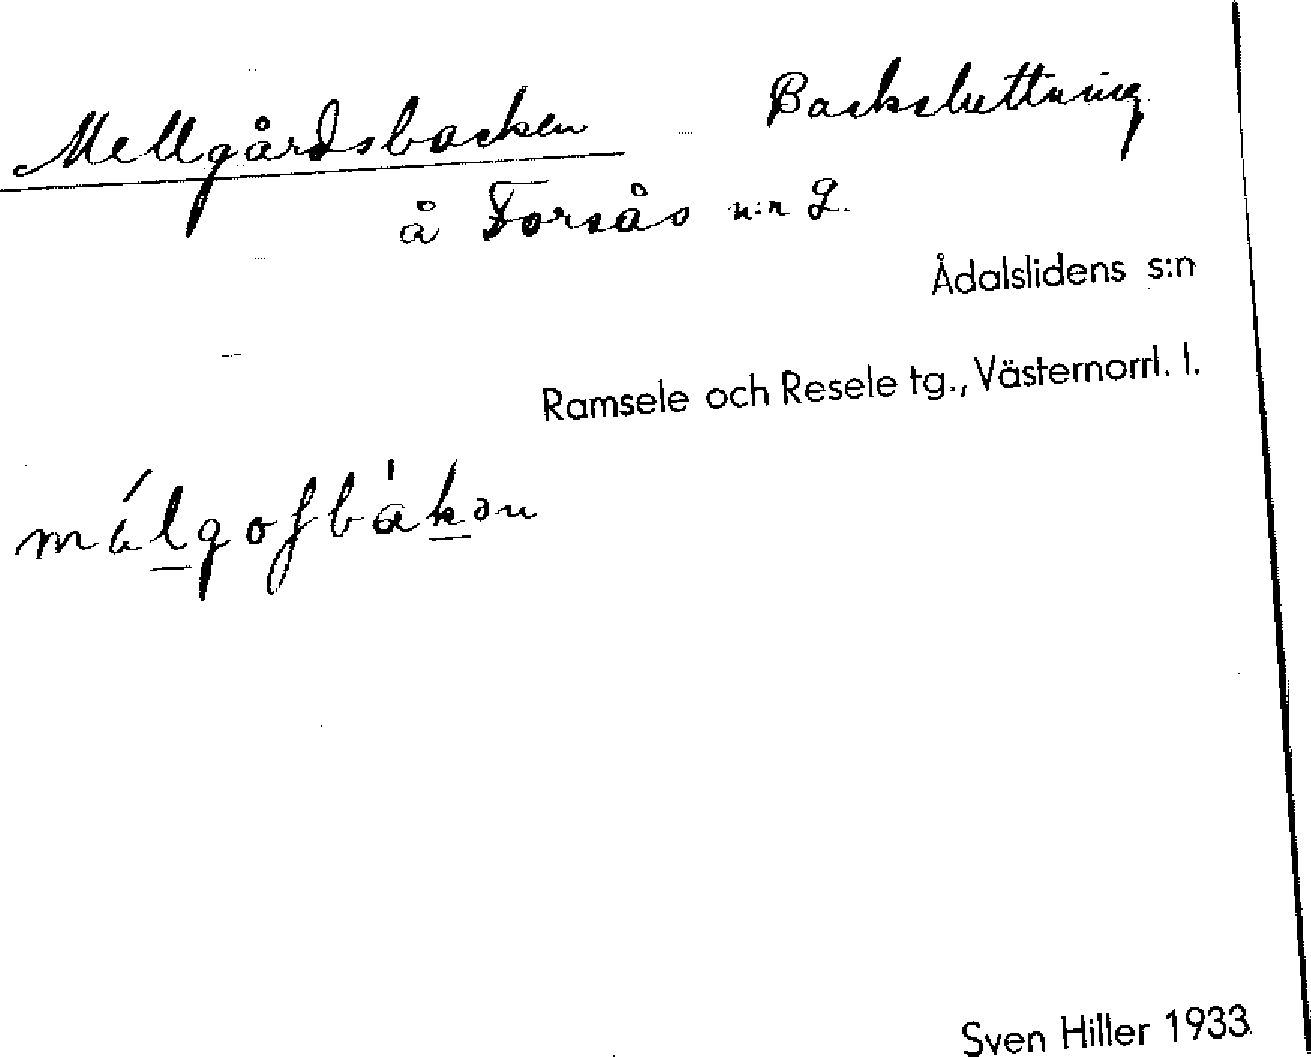 Mellgårdsbacken Backsluttning
å Forsås n:r 2.
Ådalslidens s:n
Ramsele och Resele tg., Västernorrl. l.
Sven Hiller 1933